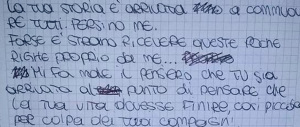 LA TUA STORIA E' ARRIVATA A COMMUO
RE TUTTI. PERSINO ME.
FORSE E' STRANO RICEVERE QUESTE POCHE
RIGHE PROPRIO DA ME...
MI FA MALE IL PENSIERO CHE TU SIA
ARRIVATA AL PUNTO DI PENSARE CHE
LA TUA VITA DOVESSE FINIRE, COSI PICCOLA
PER COLPA DEI TUOI COMPAGNI